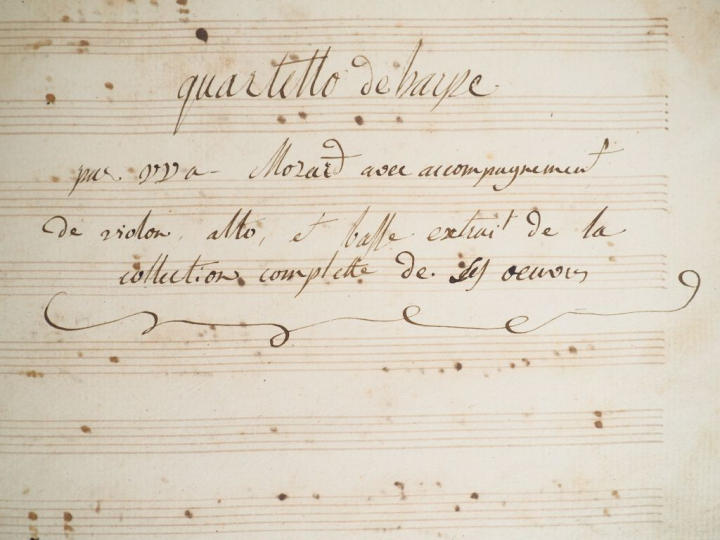 quartetto de harpe
par. W A - Mozard avec accompagnement
de violon, alto, et basse extrait de la
collection complette de ses oeuvres